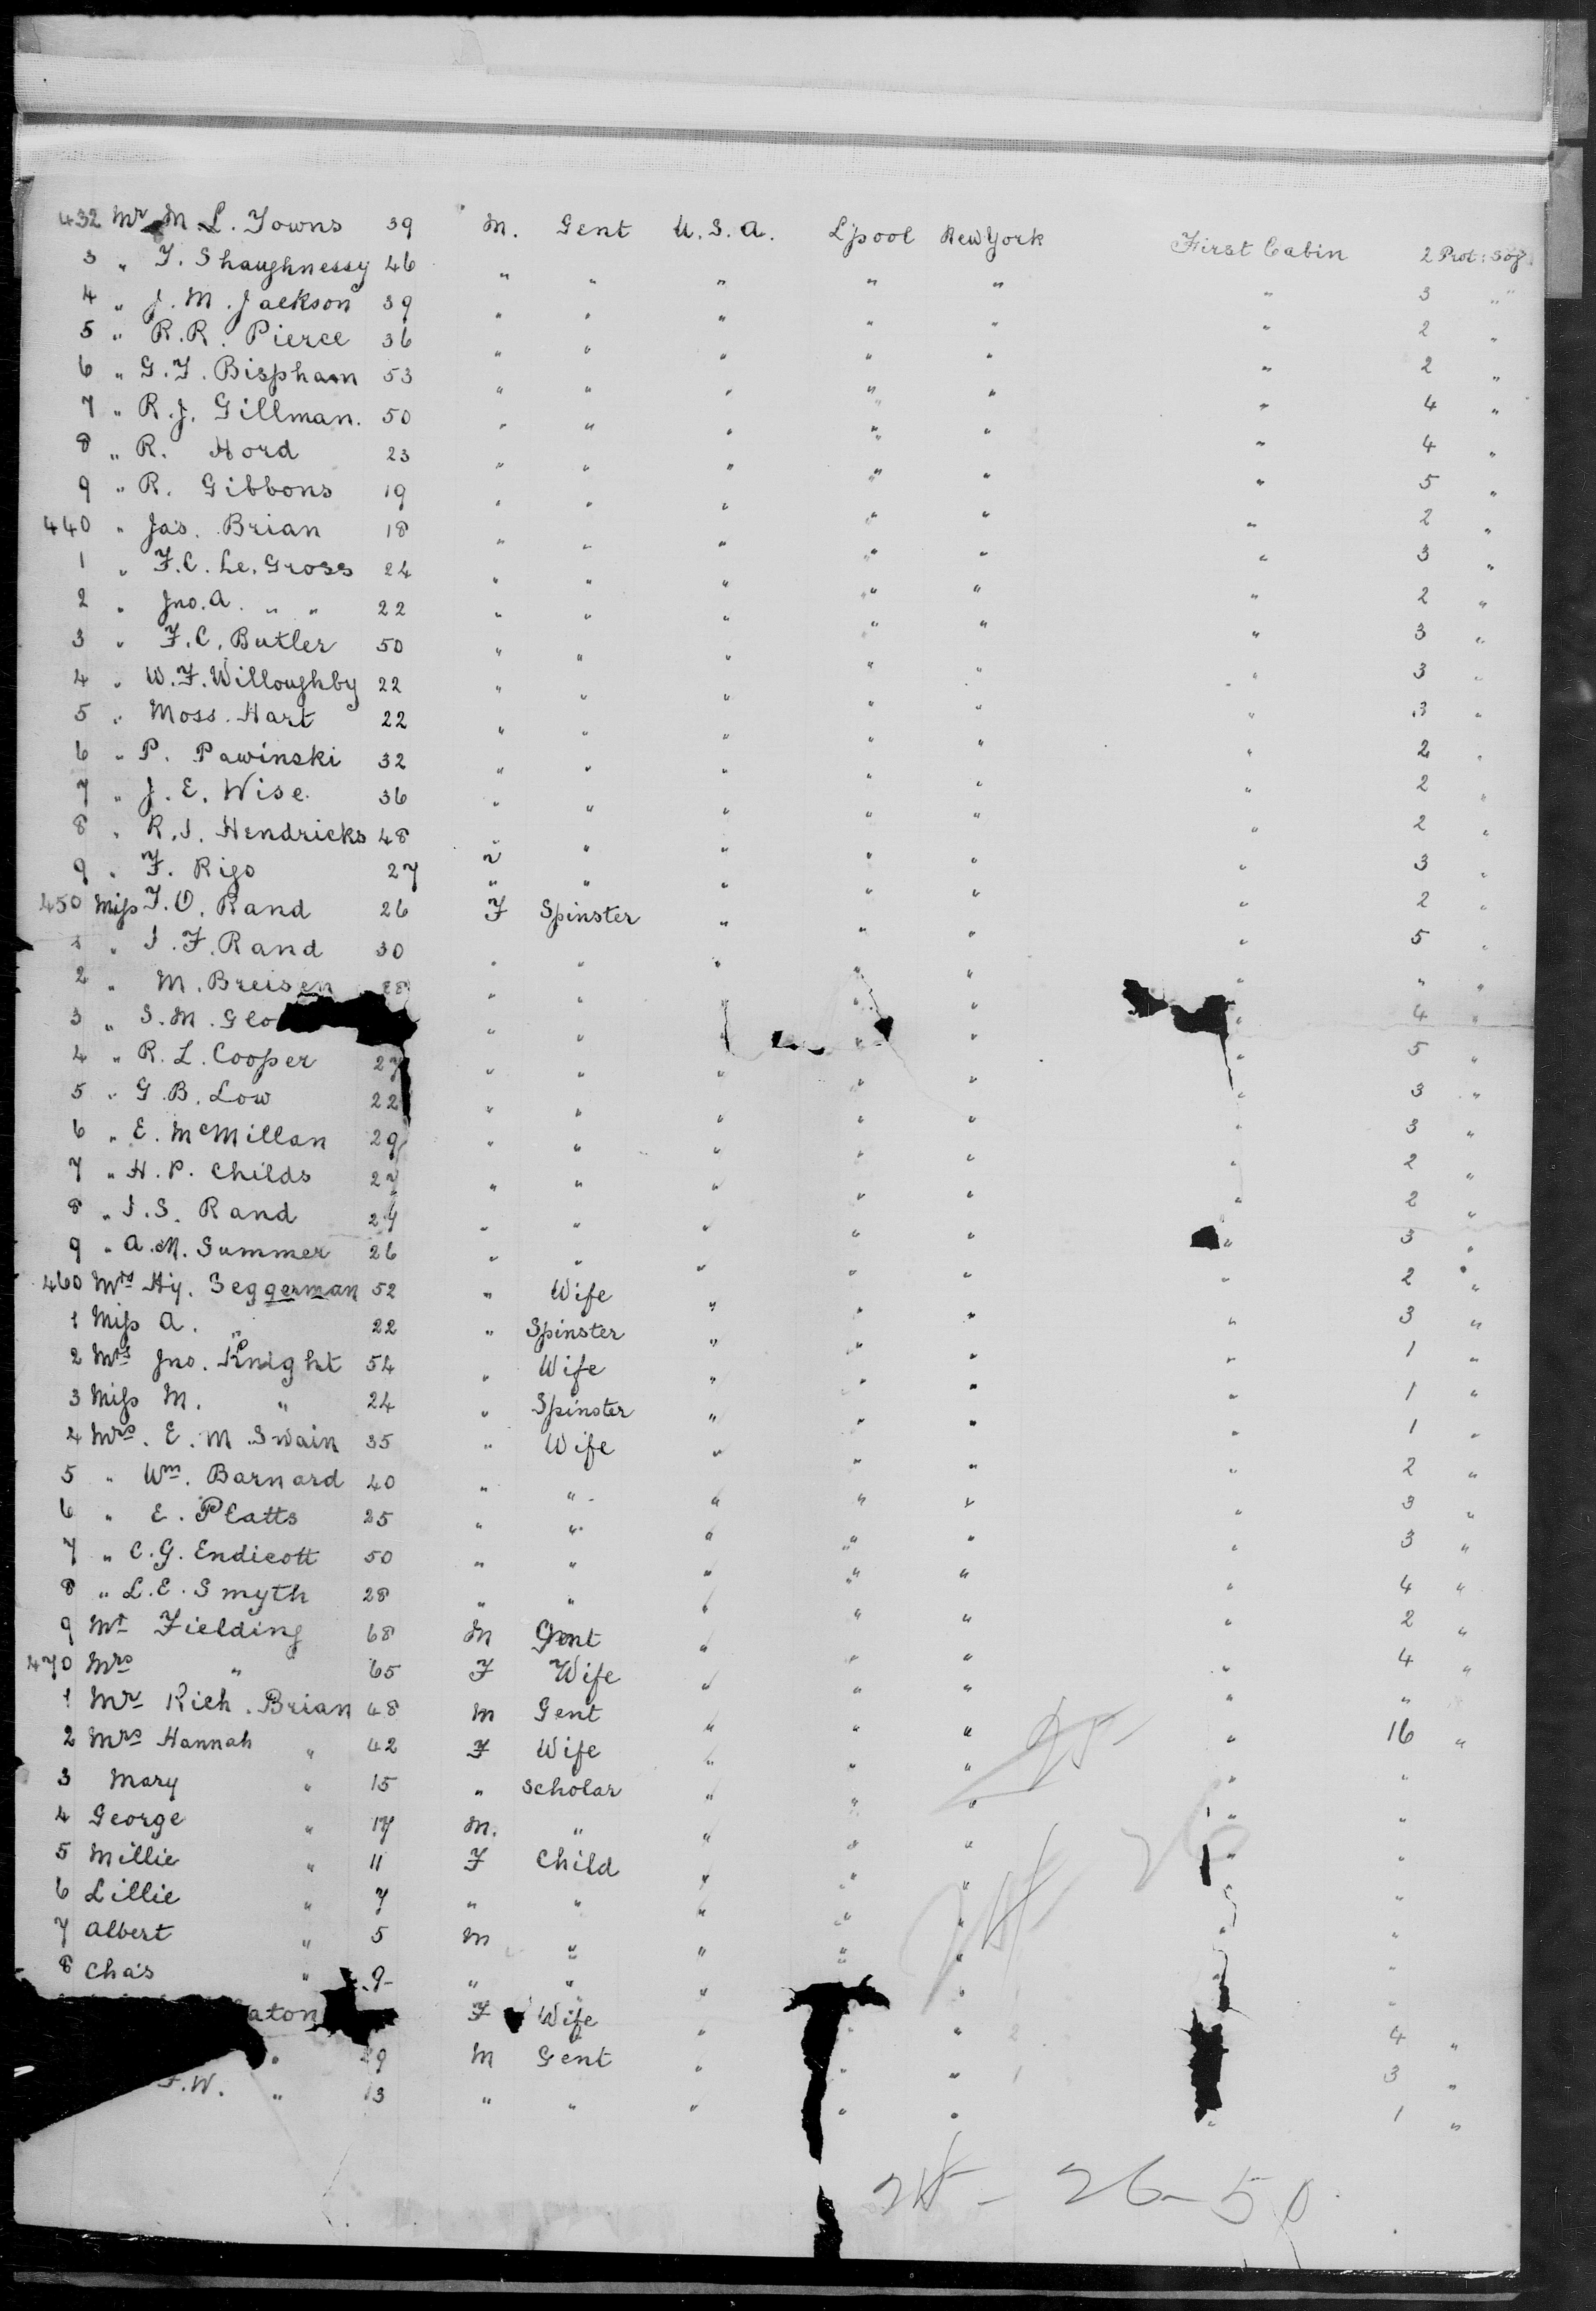 432 Mr M. L. Towns 39 M. Gent U.S.A. L'pool New York First Cabin 2 Prot: Sof
3 " T. Shaughnessy 46 " " " " " " 3 "
4 " J. M. Jackson 39 " " " " " " 2 "
5 " R. R. Pierce 36 " " " " " " 2 "
6 " G. T. Bispham 53 " " " " " " 4 "
7 " R. J. Gillman. 50 " " " " " " 4 "
8 " R. Hord 23 " " " " " " 5 "
9 " R. Gibbons 19 " " " " " " 2 "
440 " Jas. Brian 18 " " " " " " 3 "
1 " F. C. Le. Gross 24 " " " " " " 2 "
2 " Jno. A. " " 22 " " " " " " 3 "
3 " F. C. Butler 50 " " " " " " 3 "
4 " W. F. Willoughby 22 " " " " " " 3 "
5 " Moss. Hart 22 " " " " " " 2 "
6 " P. Pawinski 32 " " " " " " 2 "
7 " J. E. Wise. 36 " " " " " " 2 "
8 " R. I. Hendricks 48 " " " " " " 3 "
9 " F. Rigo 27 " " " " " " 2 "
450 Miss T. O. Rand 26 F Spinster " " " " 5 "
1 " I. F. Rand 30 " " " " " " " "
2 " M. Breisen 28 " " " " " " 4 "
3 " S. M. Glo " " " " " " 5 "
4 " R. L. Cooper 27 " " " " " " 3 "
5 " G. B. Low 22 " " " " " " 3 "
6 " E. McMillan 29 " " " " " " 2 "
7 " H. P. Childs 27 " " " " " " 2 "
8 " I. S. Rand 24 " " " " " " 3 "
9 " A. M. Summer 26 " " " " " " 2 "
460 Mrs Hy. Seggerman 52 " Wife " " " " 3 "
1 Miss A. " 22 " Spinster " " " " 1 "
2 Mrs Jno. Knight 54 " Wife " " " " 1 "
3 Miss M. " 24 " Spinster " " " " 1 "
4 Mrs. E. M. Swain 35 " Wife " " " " 2 "
5 " Wm. Barnard 40 " " " " " " 3 "
6 " E. Platts 25 " " " " " " 3 "
7 " C. G. Endicott 50 " " " " " " 4 "
8 " L. E. Smyth 28 " " " " " " 2 "
9 Mr Fielding 68 M Gent " " " " 4 "
470 Mrs " 65 F Wife " " " " "
1 Mr Rich. Brian 48 M Gent " " " " 16 "
2 Mrs Hannah " 42 F Wife " " " " "
3 Mary " 15 " Scholar " " " " "
4 George " 17 M. " " " " " "
5 Millie " 11 F Child " " " " "
6 Lillie " 7 " " " " " " "
7 Albert " 5 M " " " " " "
8 Chas " 9 " " " " " " "
aton F Wife " " " 4 "
" 9 M Gent " " " 3 "
F. W. " 13 " " " " " " 1 "
26 - 50